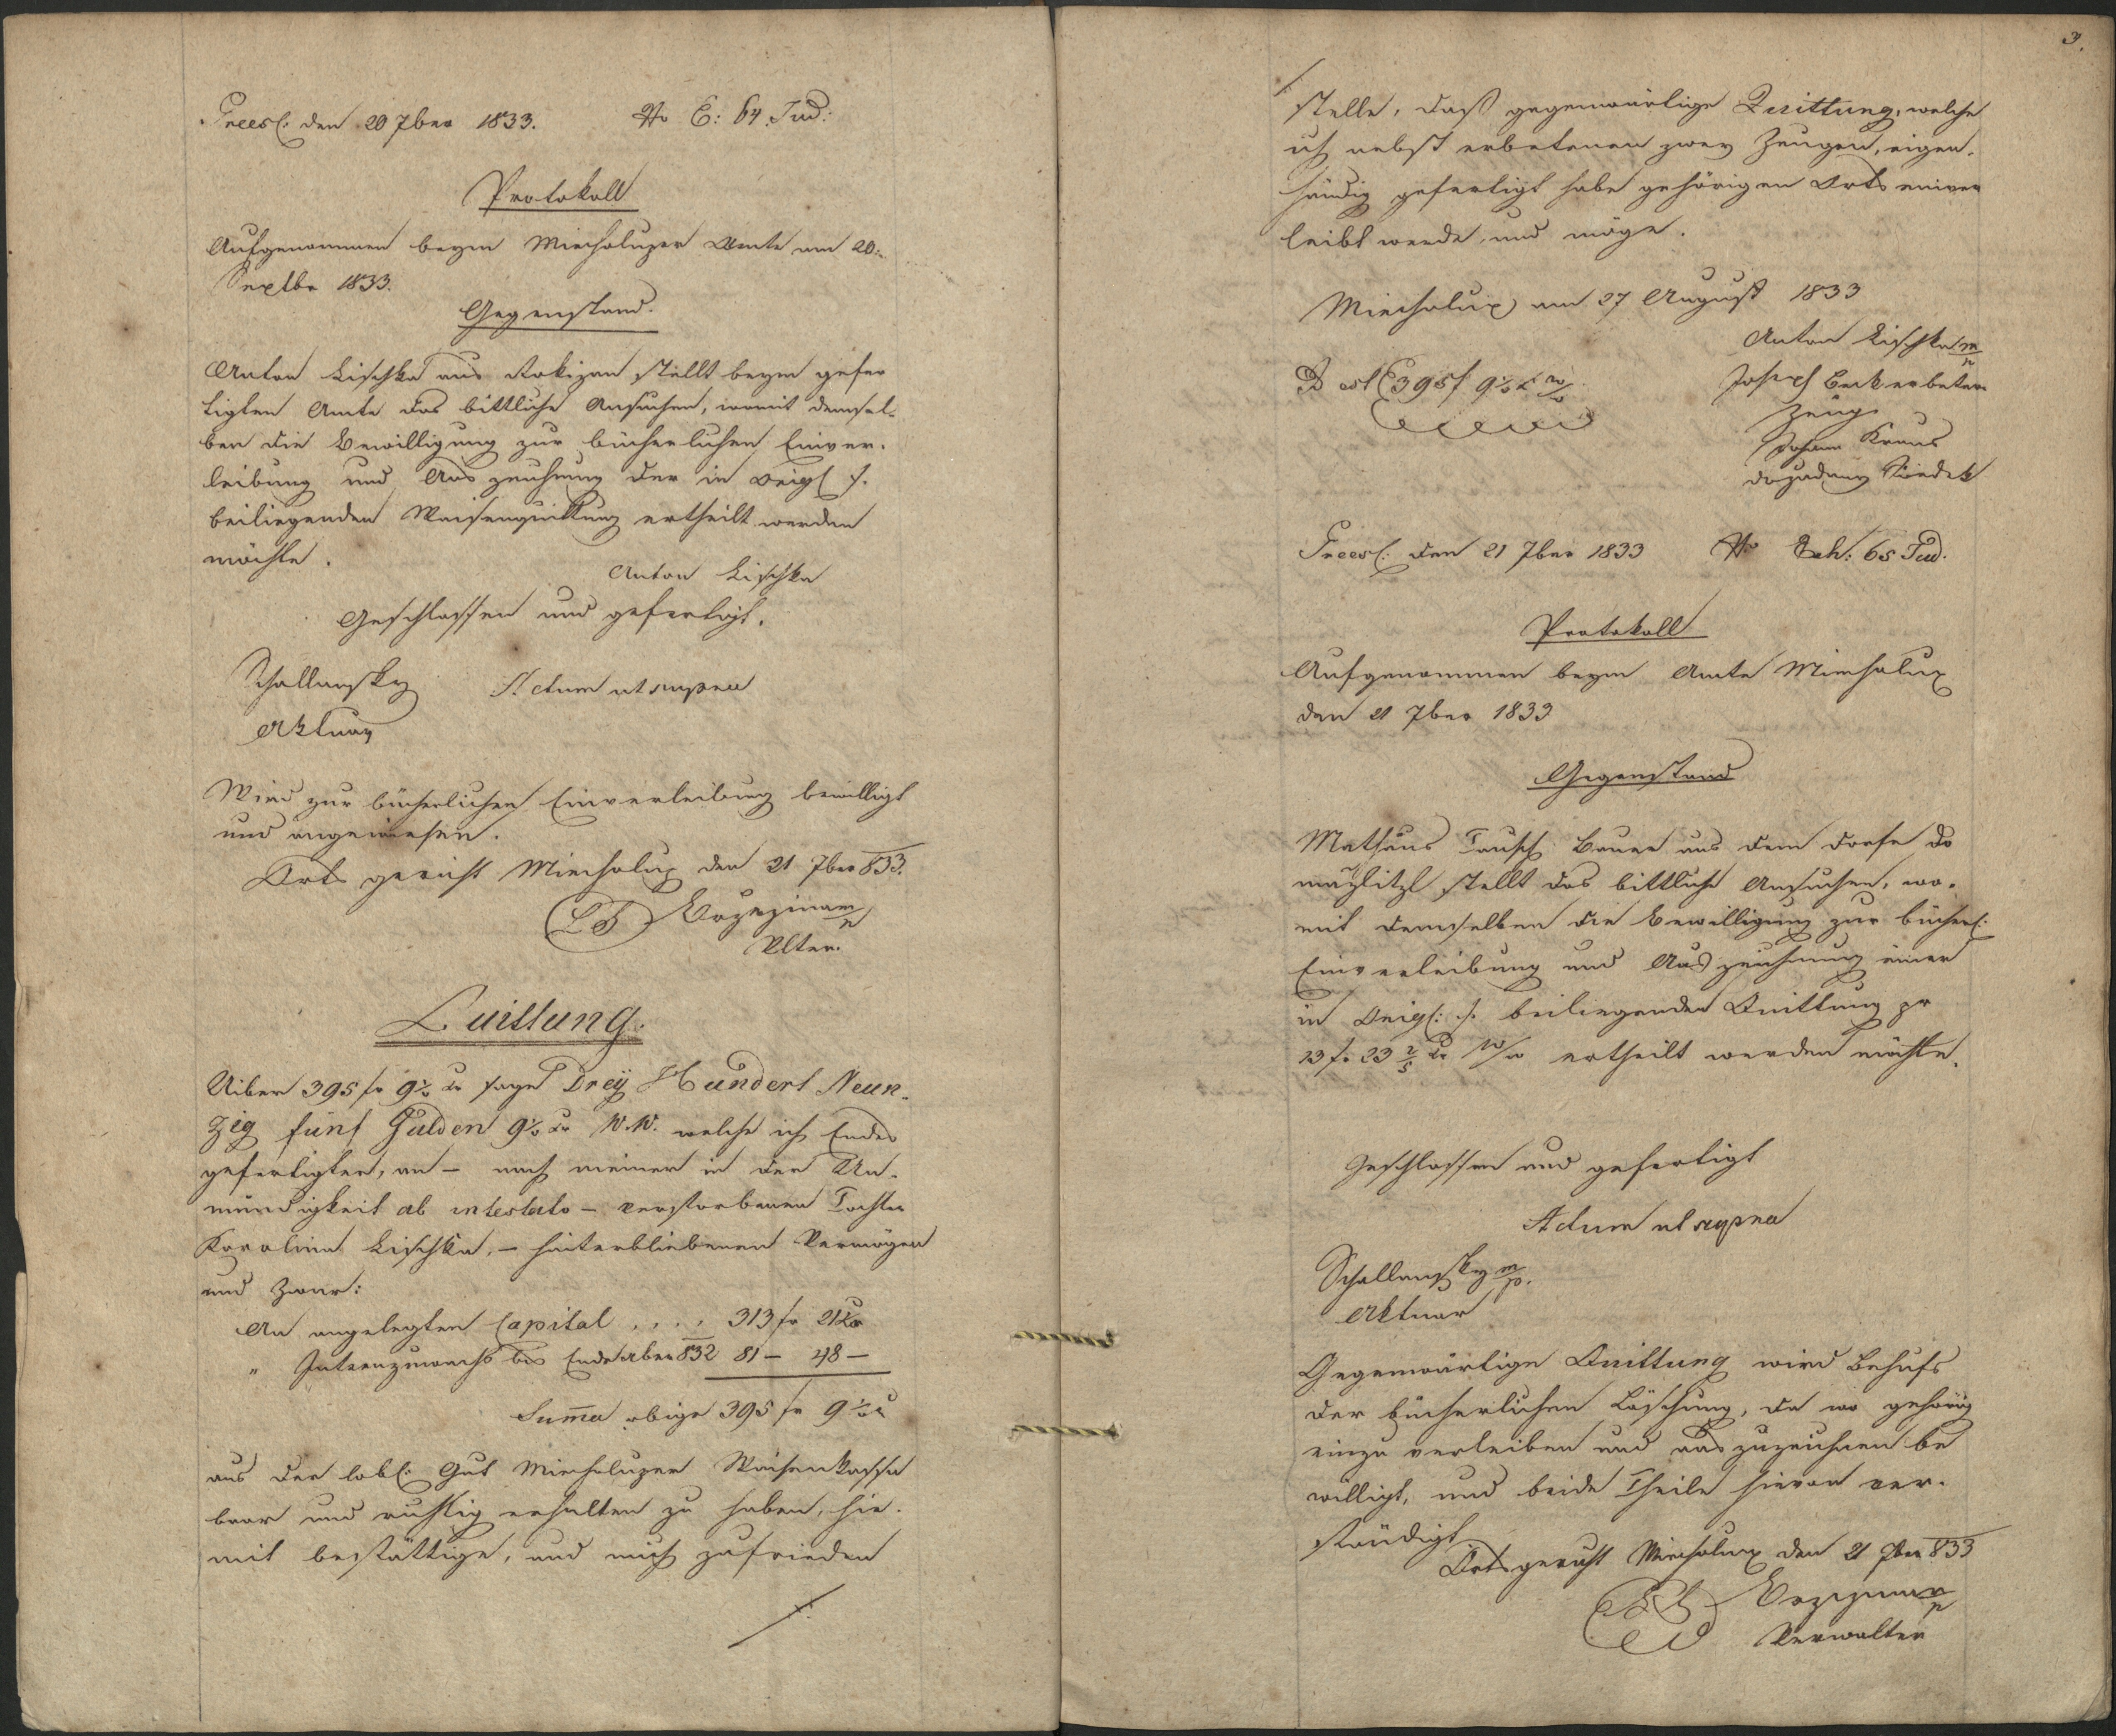 Praes: den 20 7ber 1833. No E: 64 Jud:
Protokoll
Aufgenommen beym Miecholuper Amte am 20.
Septbr 1833.
Gegenstand.
Anton Lischka aus Rokizan stellt beym gefer
tigten Amte das bittliche Ansuchen, womit demsel-
ben die Bewilligung zur bücherlichen Einver-
leibung und Auszeichnung der in Origl ./.
beiliegenden Waisenquittung ertheilt werden
möchte.
Anton Lischka
Geschlossen und gefertigt.
Schallansky Actum ut supra
Aktuar
Wird zur bücherlichen Einverleibung bewilligt
und angewiesen.
Ortsgericht Miecholup den 21 7ber 833.
LS
Vlter.
Quittung.
Uiber 395 fr 9 ½ xr sage Drey Hundert Neun-
zig fünf Gulden 9 ½ xr W.W. welche ich Endes
gefertigter, an – nach meiner in der Un-
mündigkeit ab intestato – verstorbenen Tochter
Karolina Lischka, – hinterbliebenen Vermögen
und zwar:
An angelegten Capital .... 313 fr 21 xr
" Intrenzuwachs bis Ende 832 81 – 48 –
Suma obige 395 fr 9 ½ xr
aus der löbl: Gut Miecholuper Waisenkassa
baar und richtig erhalten zu haben, hie-
mit bestättige, und mich zufrieden
./.
3.
./.
stelle, daß gegenwärtige Quittung, welche
ich nebst erbetenen zwey Zeugen, eigen-
händig gefertigt habe gehörigen Orts einver
leibt werde, und möge.
Miecholup am 27 August 1833
Anton Lischka m/p
D est 395 f 9 ½ x w/w Joseph Beck erbetener
Zeug
Johann Kraus
Praes: den 21 7ber 1833 No Exh: 65 Jud.
Protokoll
Aufgenommen beym Amte Miecholup
den 21 7ber 1833
Gegenstand
Mathäus Tausch Bauer aus dem Dorfe Do
mazlitzl stellt das bittliche Ansuchen, wo-
mit demselben die Bewilligung zur bücherl:
Einverleibung und Auszeichnung einer
in Origl: ./. beiliegenden Quittung pr
13 fr 23 2/5 xr w/w ertheilt werden möchte.
Geschlossen und gefertigt
Actum ut supra
Schallansky m/p.
Aktuar
Gegenwärtige Quittung wird Behufs
der bücherlichen Löschung, da wo gehörig
einzuverleiben und auszuzeichnen be
willigt, und beide Theile hievon ver-
ständigt
Ortsgericht Miecholup den 21 7ber 833
LS
Verwalter